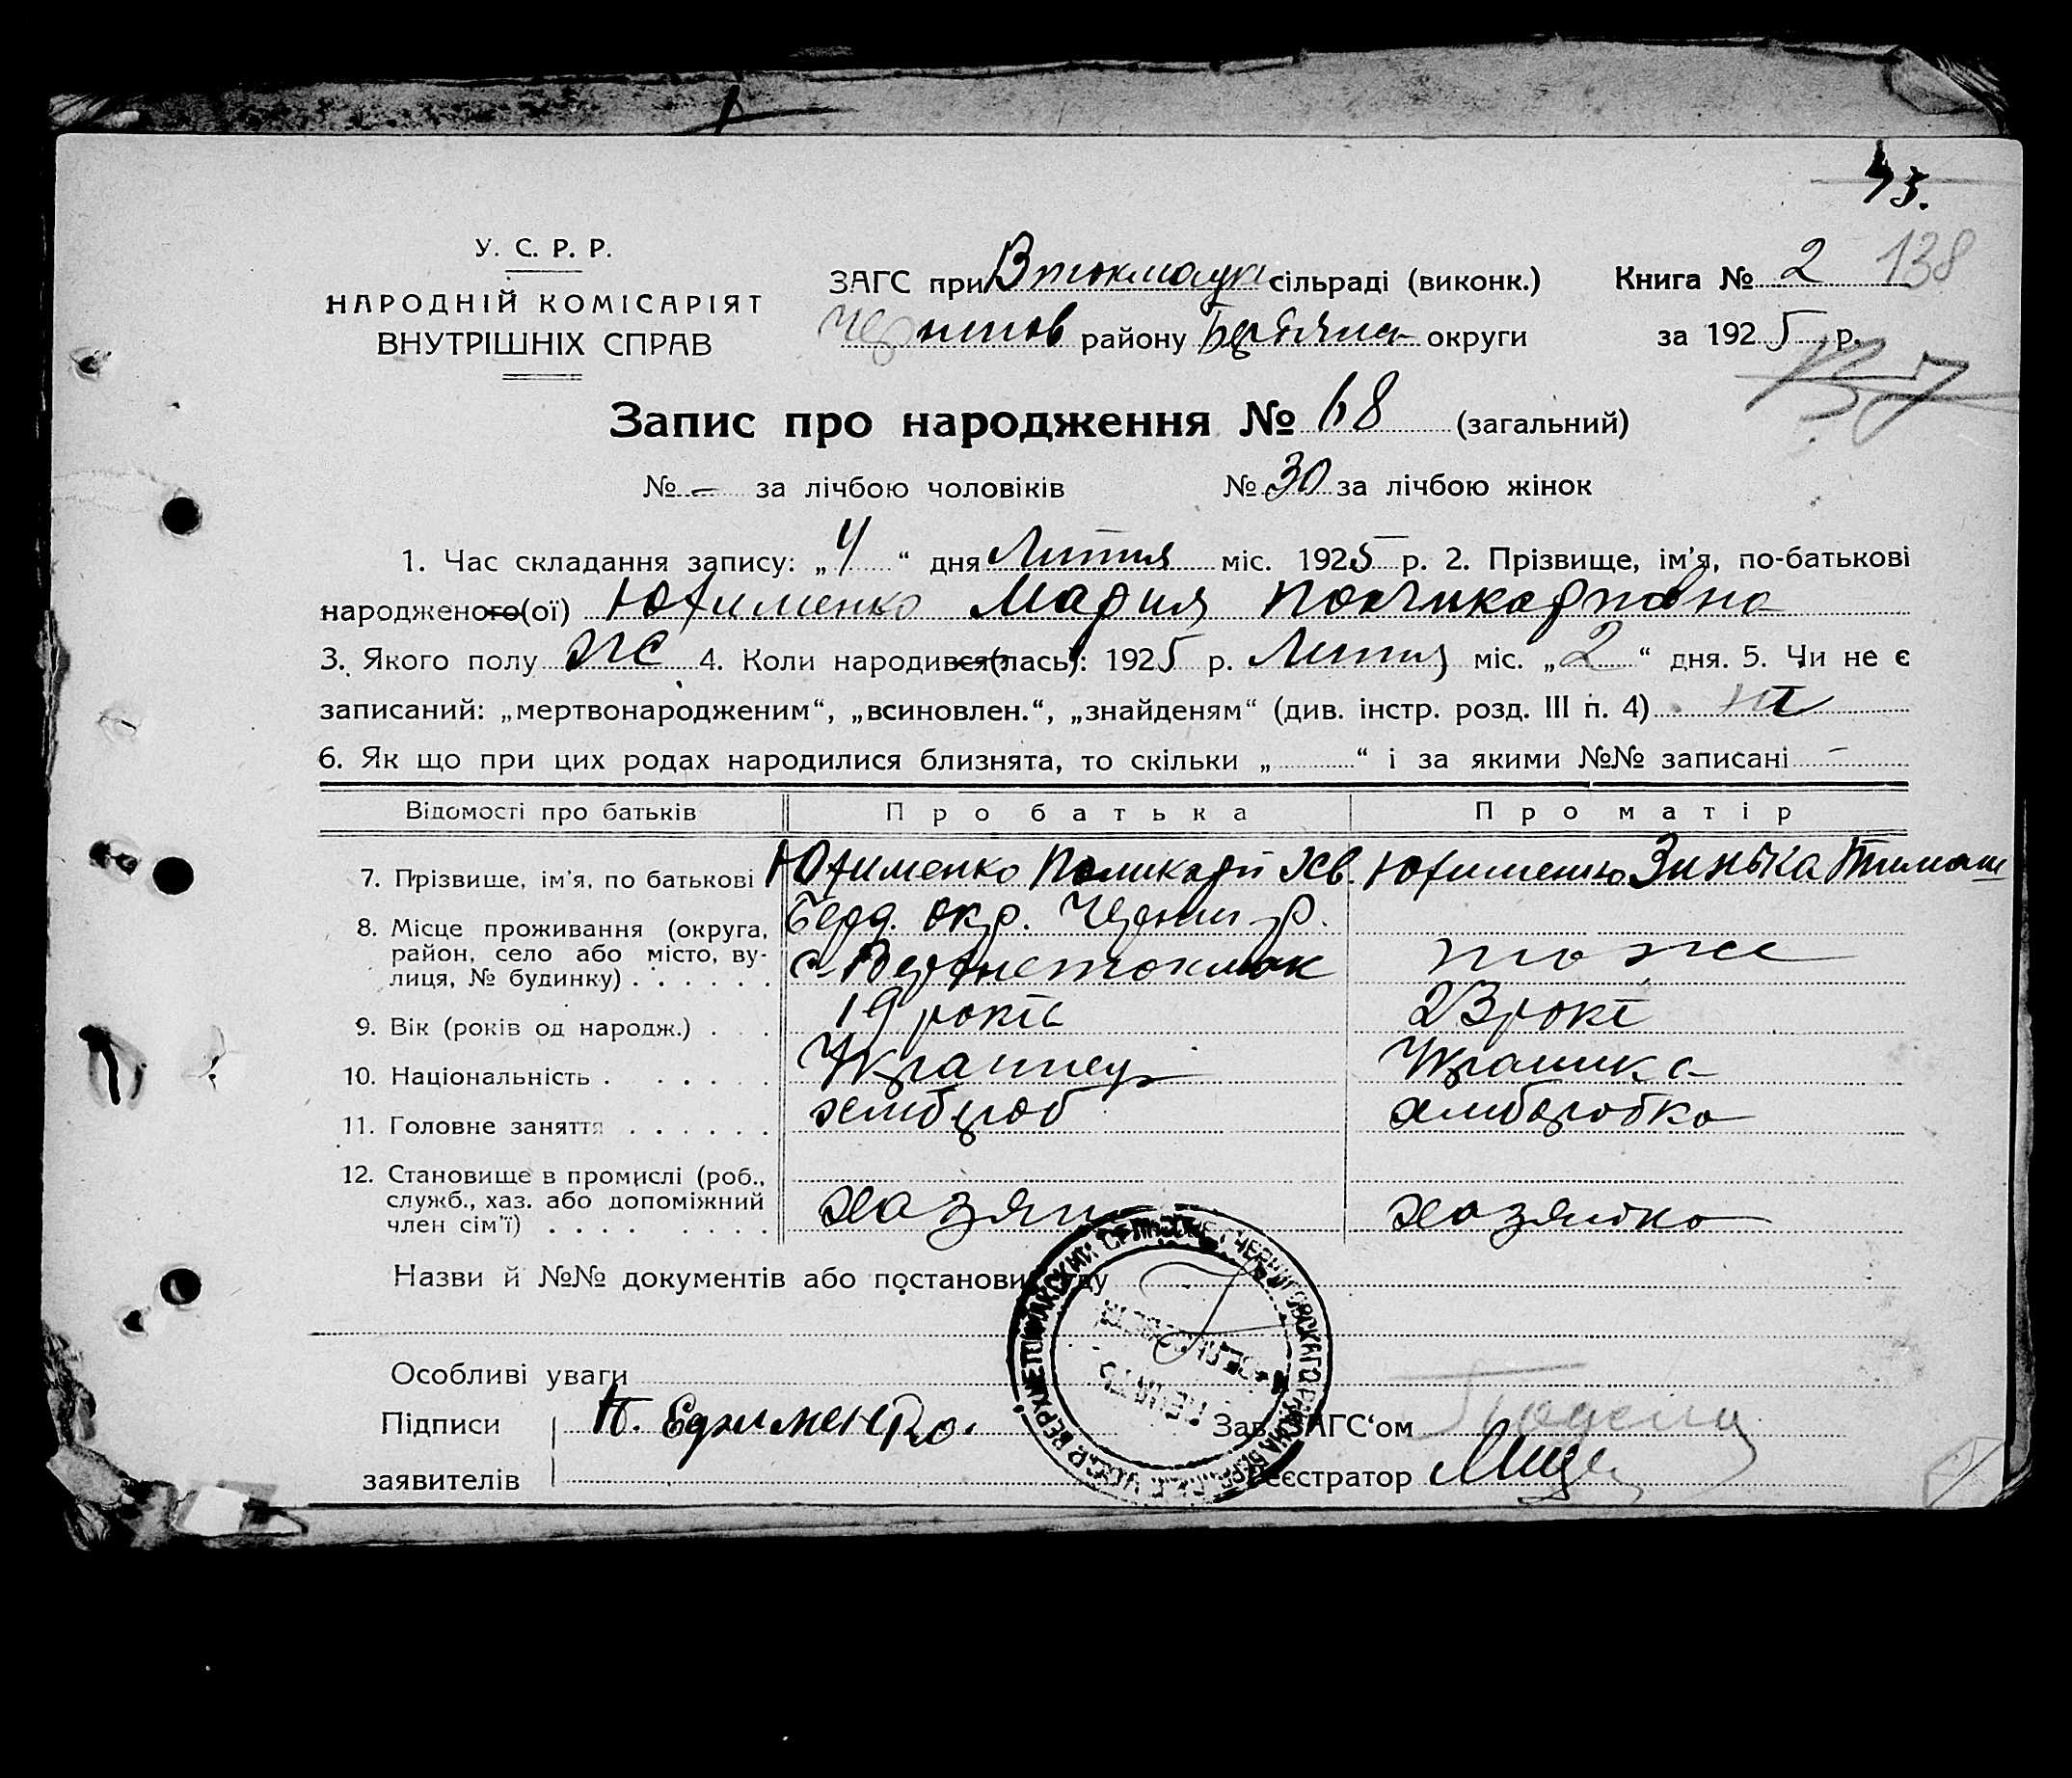 45.
У. С. Р. Р.
НАРОДНІЙ КОМІСАРІЯТ
ВНУТРІШНІХ СПРАВ
ЗАГС при Втокмацк сільраді (виконк.)
Книга № 2 138
Чернигов району Бердянс округи
за 1925 р.
Запис про народження № 68 (загальний)
№ - за лічбою чоловіків № 30 за лічбою жінок
1. Час складання запису: „4“ дня Литня міс. 1925 р. 2. Прізвище, ім'я, по-батькові
народженого(ої) Юхименко Мария Поликарповна
3. Якого полу же 4. Коли народився(лась): 1925 р. Литня міс. „2“ дня. 5. Чи не є
записаний: „мертвонародженим“, „всиновлен.“, „знайденям“ (див. інстр. розд. III п. 4) ні
6. Як що при цих родах народилися близнята, то скільки „ “ і за якими №№ записані –
Відомості про батьків Про батька Про матір
7. Прізвище, ім'я, по батькові Юхименко Поликарп Хв. Юхименко Зинька Тимош
8. Місце проживання (округа, район, село або місто, вулиця, № будинку) Берд. окр. Черниг р.
с Верхнетокмак то же
9. Вік (років од народж.) 19 років 23 рокі
10. Національність Українец Українка
11. Головне заняття хлибороб хлиборобка
12. Становище в промислі (роб., служб., хаз. або допоміжний член сім'ї) хазяин хазяйка
Назви й №№ документів або постанови суду
Особливі уваги
Підписи П. Ефименко. Зав. ЗАГС'ом
заявителів Реєстратор